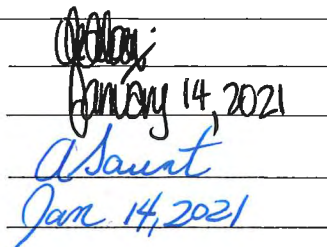 January 14, 2021
ASaunt
Jan 14, 2021